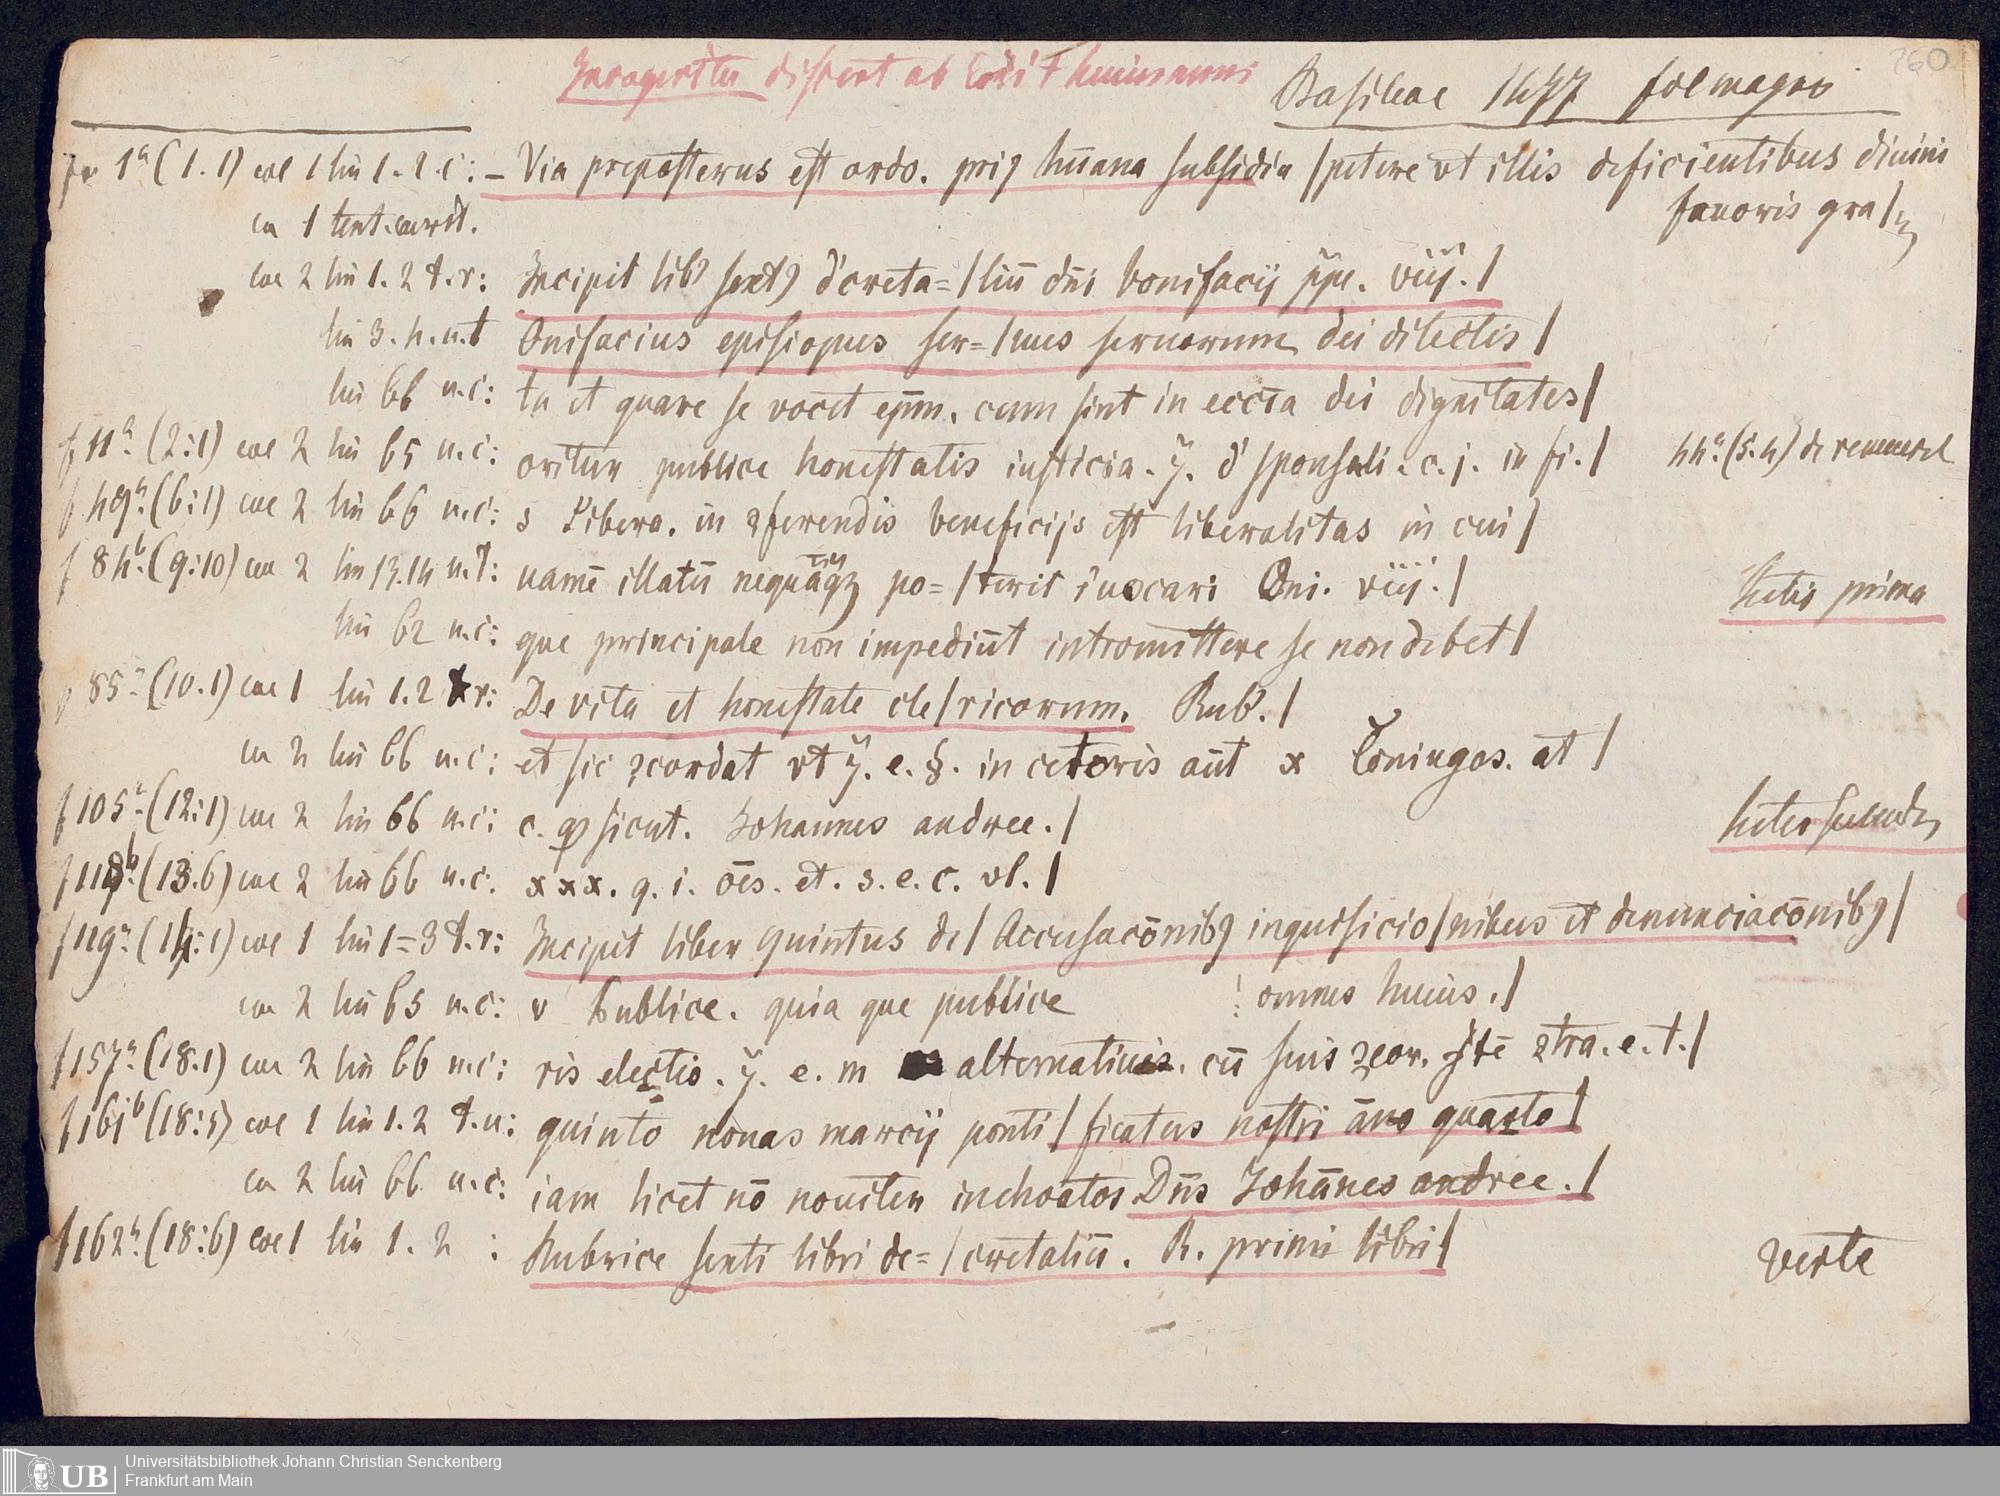 260
differt ab
Basileae 1477 fol magno
1a (1.1) col 1 lin 1.2.c: – Via preposterus est ordo. pri9 hūana subsidia / petere vt illis deficientibus diuini
fauoris gra /
col 2 lin 1.2 t.r: Incipit lib' sext9 d'creta= / liū dn̄i bonifacij pp̄e. viij. /
lin 3.4.n.t Onifacius episiopus ser= / uus seruorum dei dilectis /
lin 66 n.c: ta et quare se vocet ep̄m. cum sint in ecc̄ia dei dignitates /
f 11a. (2:1) col 2 lin 65 n.c: oritur publice honestatis iusticia. j. d' sponsali. c. j. in fi. / 44a. (5.4) de
f 49a. (6:1) col 2 lin 66 n.c: s Libera. in 2ferendis beneficijs est liberalitas in cui /
f 84b. (9:10) col 2 lin 13.14 n.t: namē illatū nequaq3 po= / terit īuocari Oni. viij. / prima
lin 62 n.c: que principale non impediūt intromittere se non debet /
85a (10.1) col 1 lin 1.2 t r: De vita et honestate cle / ricorum. Rub'. /
col 2 lin 66 n.c: et sic 2cordat vt j. e. §. in ceteris aūt x Coniugas. at /
f 105a. (12:1) col 2 lin 66 n.c: c. q sicut. Johannes andree. /
f 118b. (13.6) col 2 lin 66 n.c. xxx. q. i. ōes. et. s. e. c. vl. /
f 119a. (14:1) col 1 lin 1=3 t.r: Incipit liber quintus de / Accusacōnib9 inquisicio / nibus et denunciacōnib9 /
col 2 lin 65 n.c: v Publice. quia que publice ! omnes huius. /
f 157a. (18.1) col 2 lin 66 n.c: ris electio. j. e. m alternatiuis. cū suis 2cor. 2tra. e. t. /
f 161b (18:5) col 1 lin 1.2 t.n: quinto nonas marcij ponti / ficatus nostri āno quarto /
col 2 lin 66 n.c: iam licet nō nouiter inchoatos Dn̄s Johānes andree. /
f 162a. (18:6) col 1 lin 1.2 : Rubrice sexti libri de= / cretaliū. R. primi libri /
verte
UB Universitätsbibliothek Johann Christian Senckenberg
Frankfurt am Main